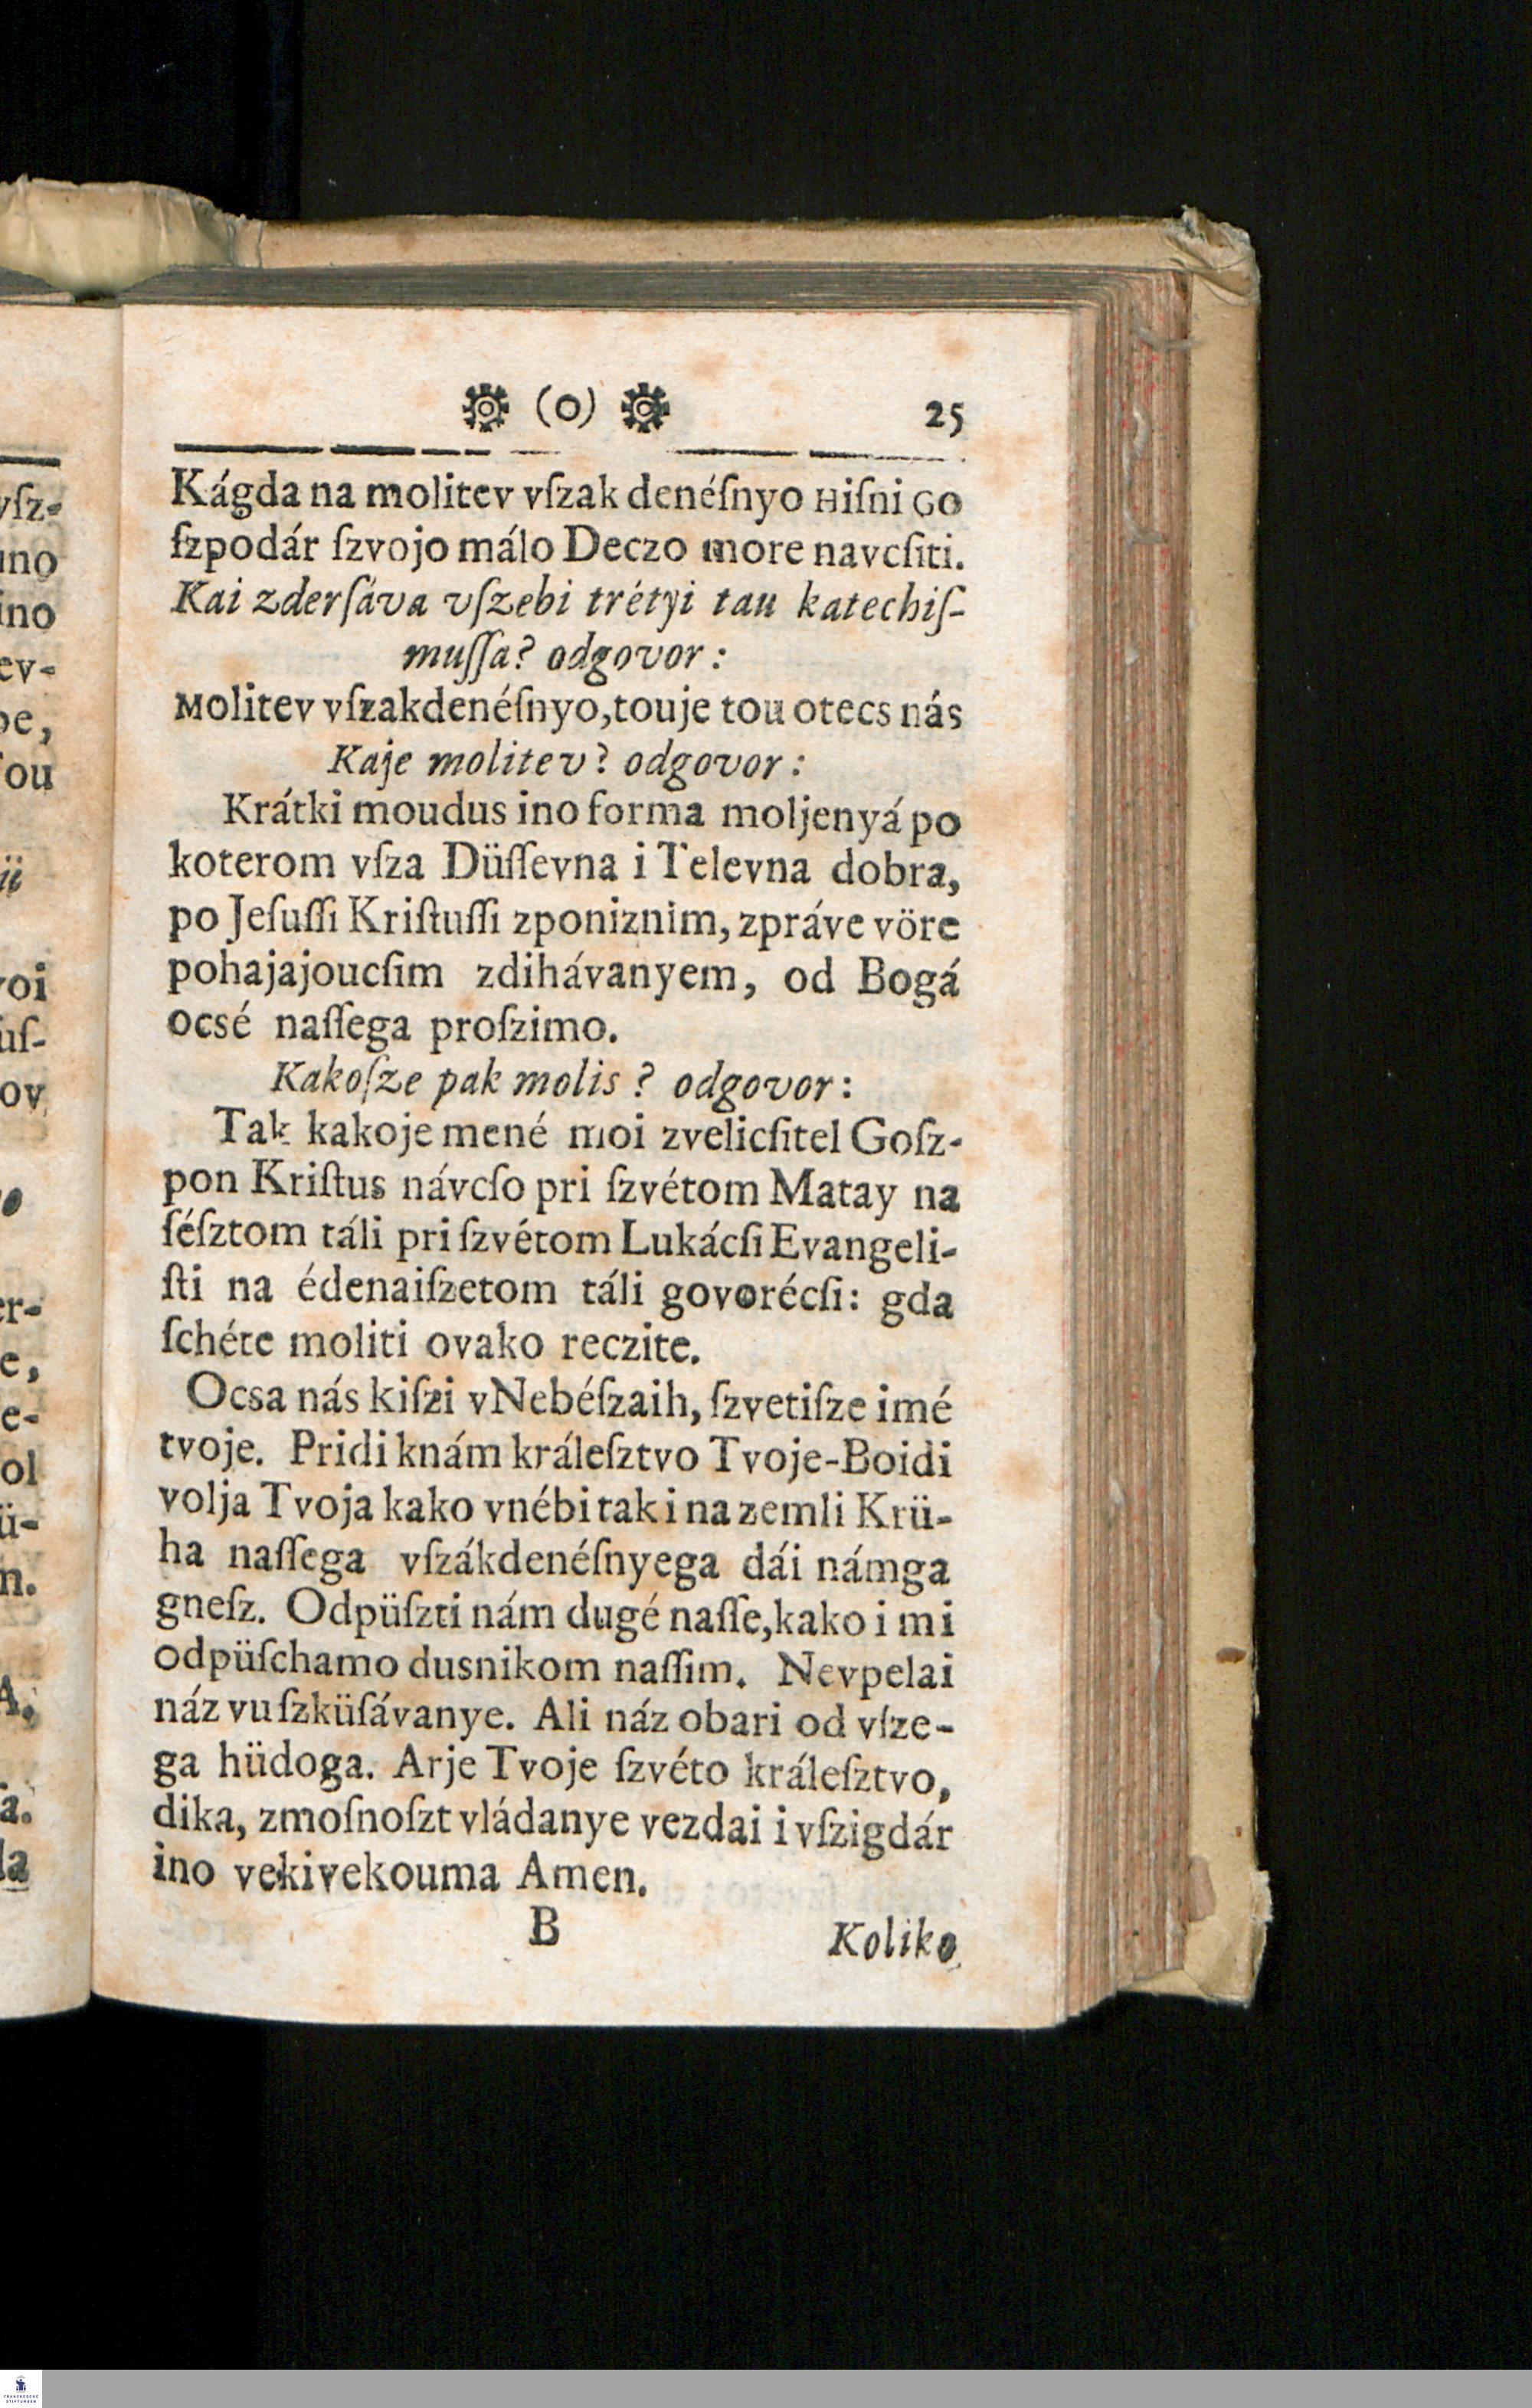 (o) 25
Kágda na molitev vſzak denéſnyo Hiſni Go
ſzpodár ſzvojo málo Deczo more navcſiti.
Kai zderſáva vſzebi trétyi tau katechiſ-
muſſa? odgovor:
Molitev vſzakdenéſnyo, touje tou otecs nás
Kaje molitev? odgovor:
Krátki moudus ino forma moljenyá po
koterom vſza Düſſevna i Televna dobra,
po Jeſuſſi Kriſtuſſi zponiznim, zpráve vöre
pohajajoucſim zdihávanyem, od Bogá
ocsé naſſega proſzimo.
Kakoſze pak molis? odgovor:
Tak kakoje mené moi zvelicſitel Goſz-
pon Kriſtus návcſo pri ſzvétom Matay na
ſéſztom táli pri ſzvétom Lukácſi Evangeli-
ſti na édenaiſzetom táli govorécſi: gda
ſchéte moliti ovako reczite.
Ocsa nás kiſzi vNebéſzaih, ſzvetiſze imé
tvoje. Pridi knám králeſztvo Tvoje-Boidi
volja Tvoja kako vnébi tak i na zemli Krü-
ha naſſega vſzákdenéſnyega dái námga
gneſz. Odpüſzti nám dugé naſſe, kako i mi
odpüſchamo dusnikom naſſim. Nevpelai
náz vu ſzküſávanye. Ali náz obari od vſze-
ga hüdoga. Arje Tvoje ſzvéto králeſztvo,
dika, zmoſnoſzt vládanye vezdai i vſzigdár
ino vekivekouma Amen.
B Koliko